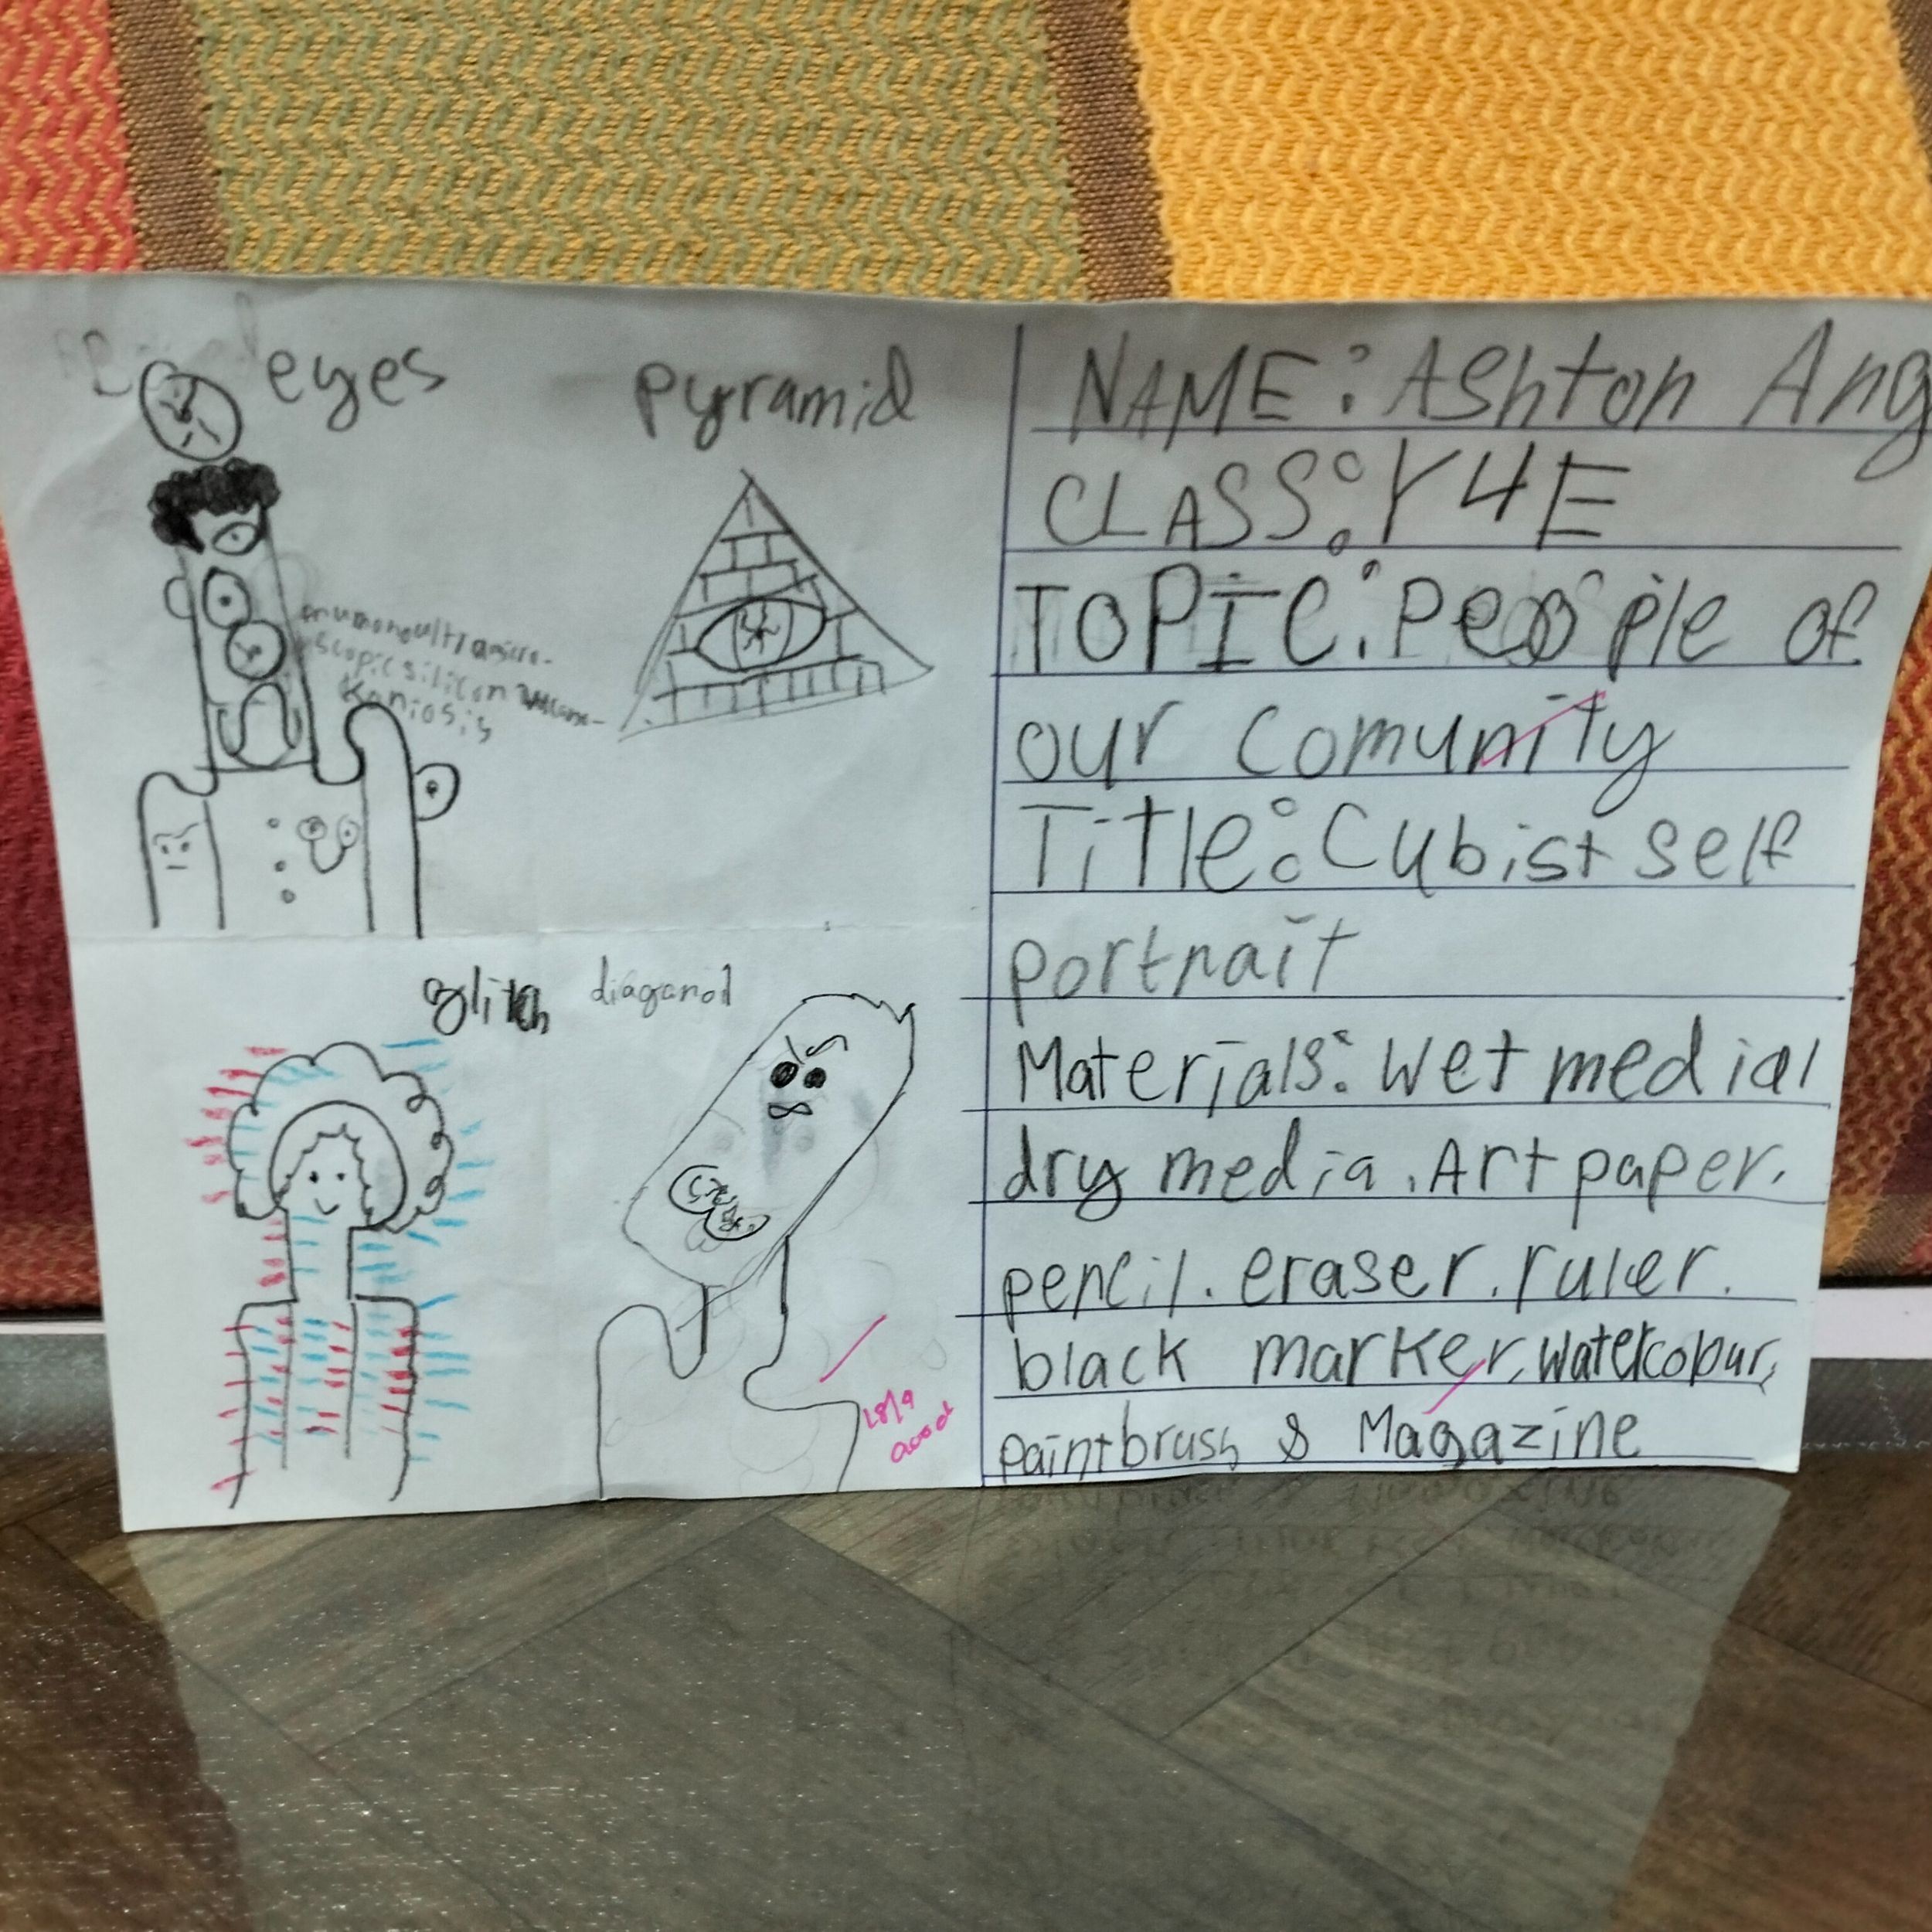 eyes
pyramid
pnumonoultramicro-
scopicsilicon
koniosis
glitch
diaganol
18/9
Good
NAME: Ashton Ang
CLASS: Y4E
TOPIC: People of
our Comunity
Title: Cubist self
portrait
Materials: Wet media/
dry media. Art paper.
pencil. eraser. ruler.
black marker, Watercolour,
paintbrush & Magazine